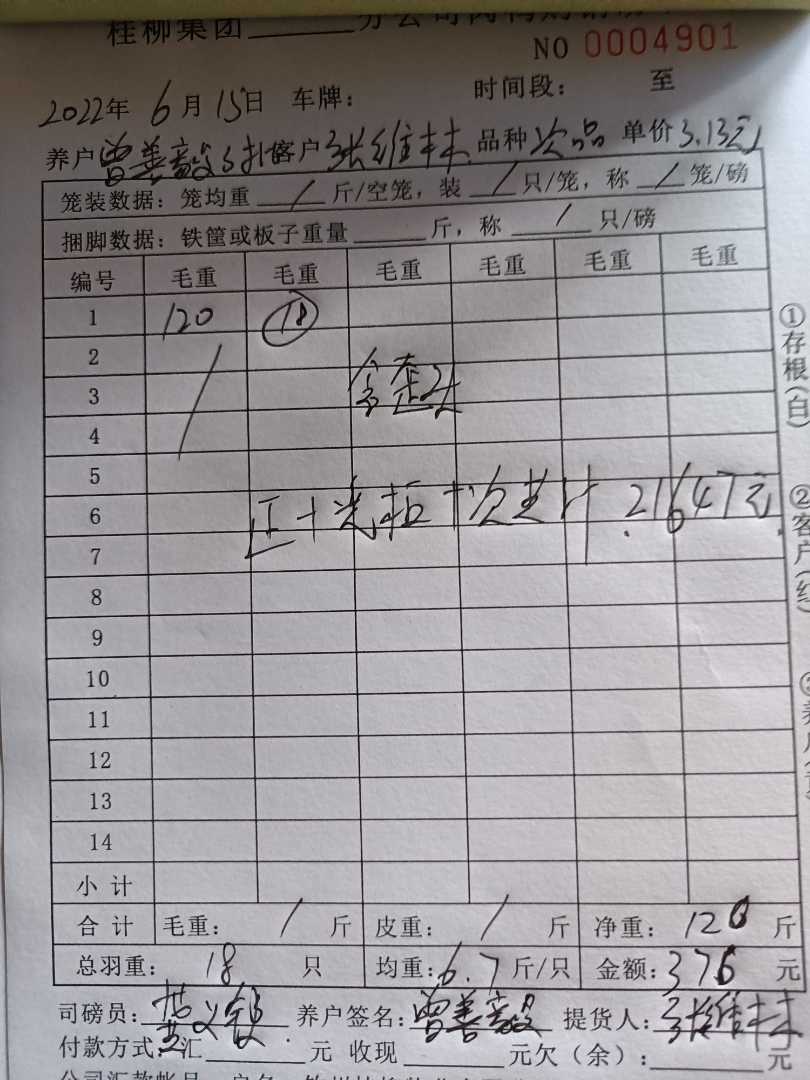 桂柳集团
NO 0004901
2022年 6月15日 车牌： 时间段： 至
养户 曾善毅 客户 张维林 品种 次品 单价 3.13元
笼装数据：笼均重 / 斤/空笼，装 / 只/笼，称 / 笼/磅
捆脚数据：铁筐或板子重量 斤，称 / 只/磅
编号 毛重 毛重 毛重 毛重 毛重 毛重
1 120 18
2 /
3
4
5
6 正+ +次 计 21647元
7
8
9
10
11
12
13
14
小计
合计 毛重： / 斤 皮重： / 斤 净重： 120 斤
总羽重： 18 只 均重： 6.7 斤/只 金额： 376 元
司磅员： 养户签名： 曾善毅 提货人： 张维林
付款方式：汇 元 收现 元欠（余）： 元
①存根（白）
②客户（红）